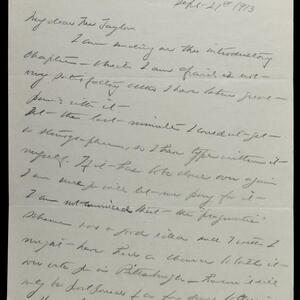 Sept. 21st 1913
My dear Mr Taylor
I am sending on the introductory
chapter - which I am afraid is not
very satisfactory altho I have taken great
pains with it -
At the last minute I could not get
a stenographer, so I have type written it
myself. If it has to be done over again
I am sure you will let me pay for it -
I am not convinced that the
scheme was a good idea and I wish I
might have had a chance to talk it
over with you in Pittsburgh -
only be postponed a few days